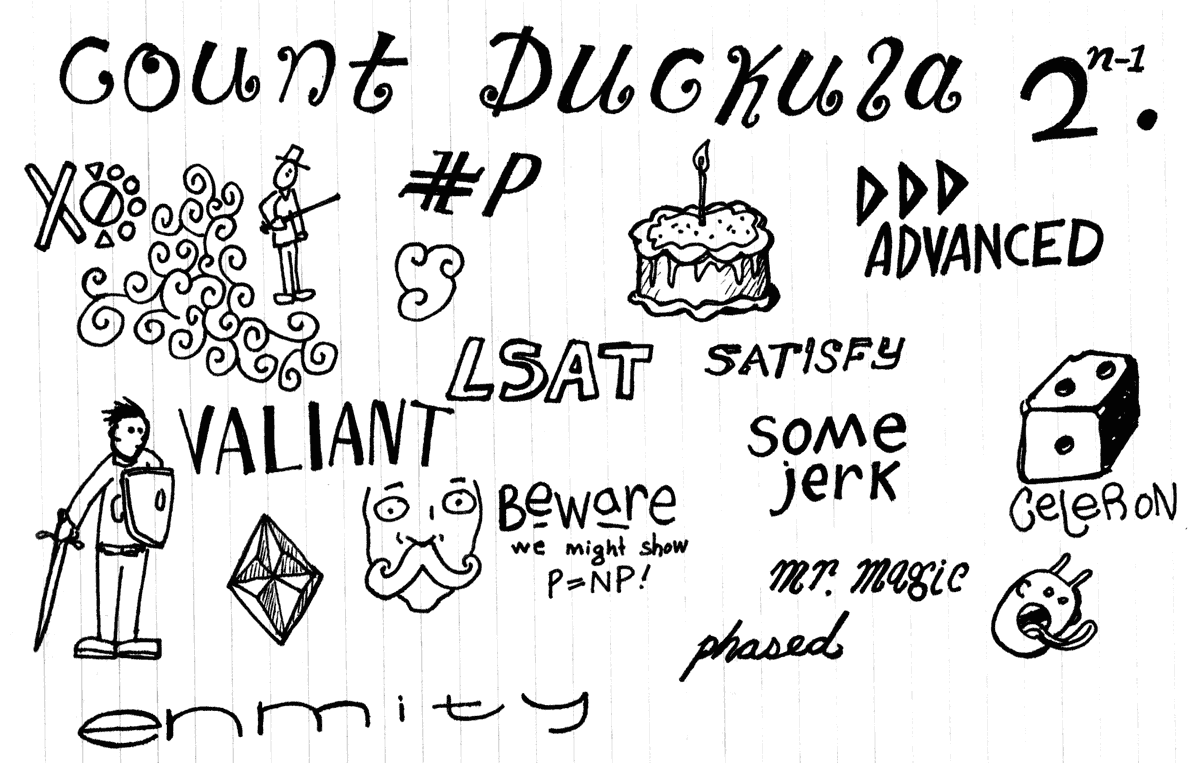 Count Duckula
2^{n-1}.
XO
#P
ADVANCED
LSAT
SATISFY
VALIANT
some
jerk
CELERON
Beware
we might show
P=NP!
mr. magic
phased
enmity